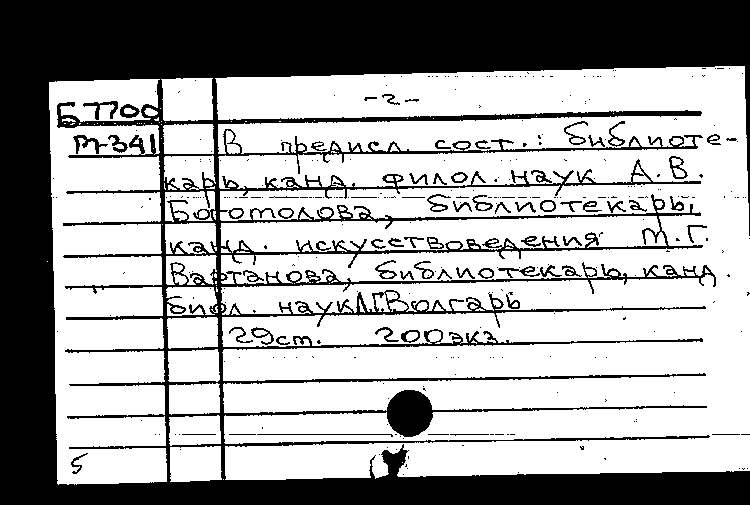 -2-
Б7700
М-341
В предисл. сост.: библиоте-
карь, канд. филол. наук А.В.
Боготолова, библиотекарь,
канд. искусствоведения М.Г.
Вартанова, библиотекарь, канд.
биол. наук Л.Г. Волгарь
29ст. 200экз.
5